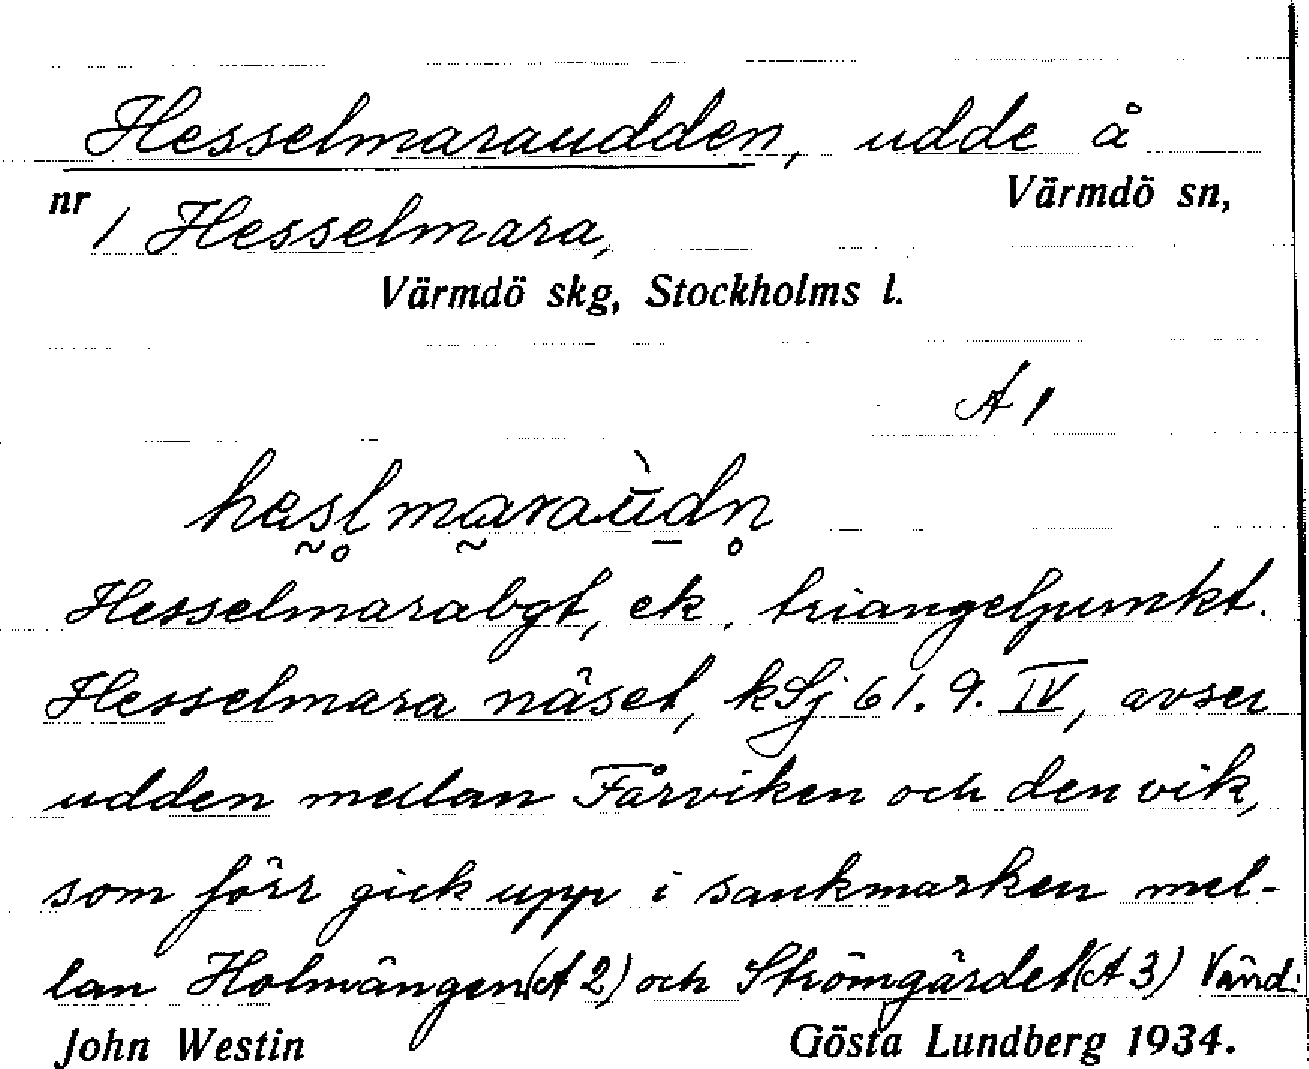 Hesselmaraudden, udde å
nr Värmdö sn,
1 Hesselmara,
Värmdö skg, Stockholms l.
A 1
Hesselmarabgt, ek. triangelpunkt.
Hesselmara näset, kSj 61.9.IV, avser
udden mellan Fårviken och den vik,
som förr gick upp i sankmarken mel-
lan Holmängen (A 2) och Strömgärdet (A 3) Vänd!
John Westin Gösta Lundberg 1934.